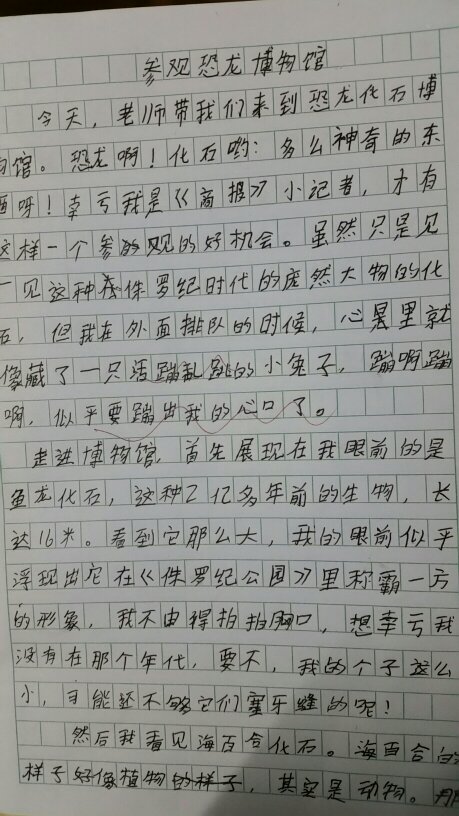 参观恐龙博物馆
今天，老师带我们来到恐龙化石博
物馆。恐龙啊！化石哟：多么神奇的东
西呀！幸亏我是《商报》小记者，才有
这样一个参观的好机会。虽然只是见
一见这种侏罗纪时代的庞然大物的化
石，但我在外面排队的时候，心里就
像藏了一只活蹦乱跳的小兔子，蹦啊蹦
啊，似乎要蹦出我的心口了。
走进博物馆，首先展现在我眼前的是
鱼龙化石，这种2亿多年前的生物，长
达16米。看到它那么大，我的眼前似乎
浮现出它在《侏罗纪公园》里称霸一方
的形象，我不由得拍拍胸口，想幸亏我
没有在那个年代，要不，我的个子这么
小，可能还不够它们塞牙缝的呢！
然后我看见海百合化石。海百合的
样子好像植物，其实是动物。那